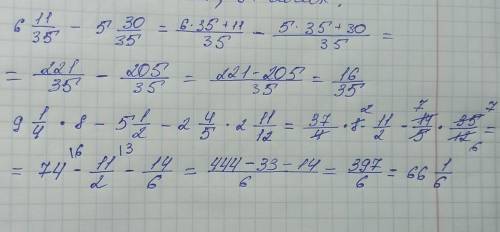 6 11/35 - 5 30/35 = 6·35+11/35 - 5·35+30/35 =
= 221/35 - 205/35 = 221-205/35 = 16/35
9 1/4 · 8 - 5 1/2 - 2 4/5 · 2 11/12 = 37/4 · 8 2 - 11/2 - 14/5 7 · 35/12 7 6 =
= 74 \6 - 11/2 \3 - 14/6 = 444-33-14/6 = 397/6 = 66 1/6